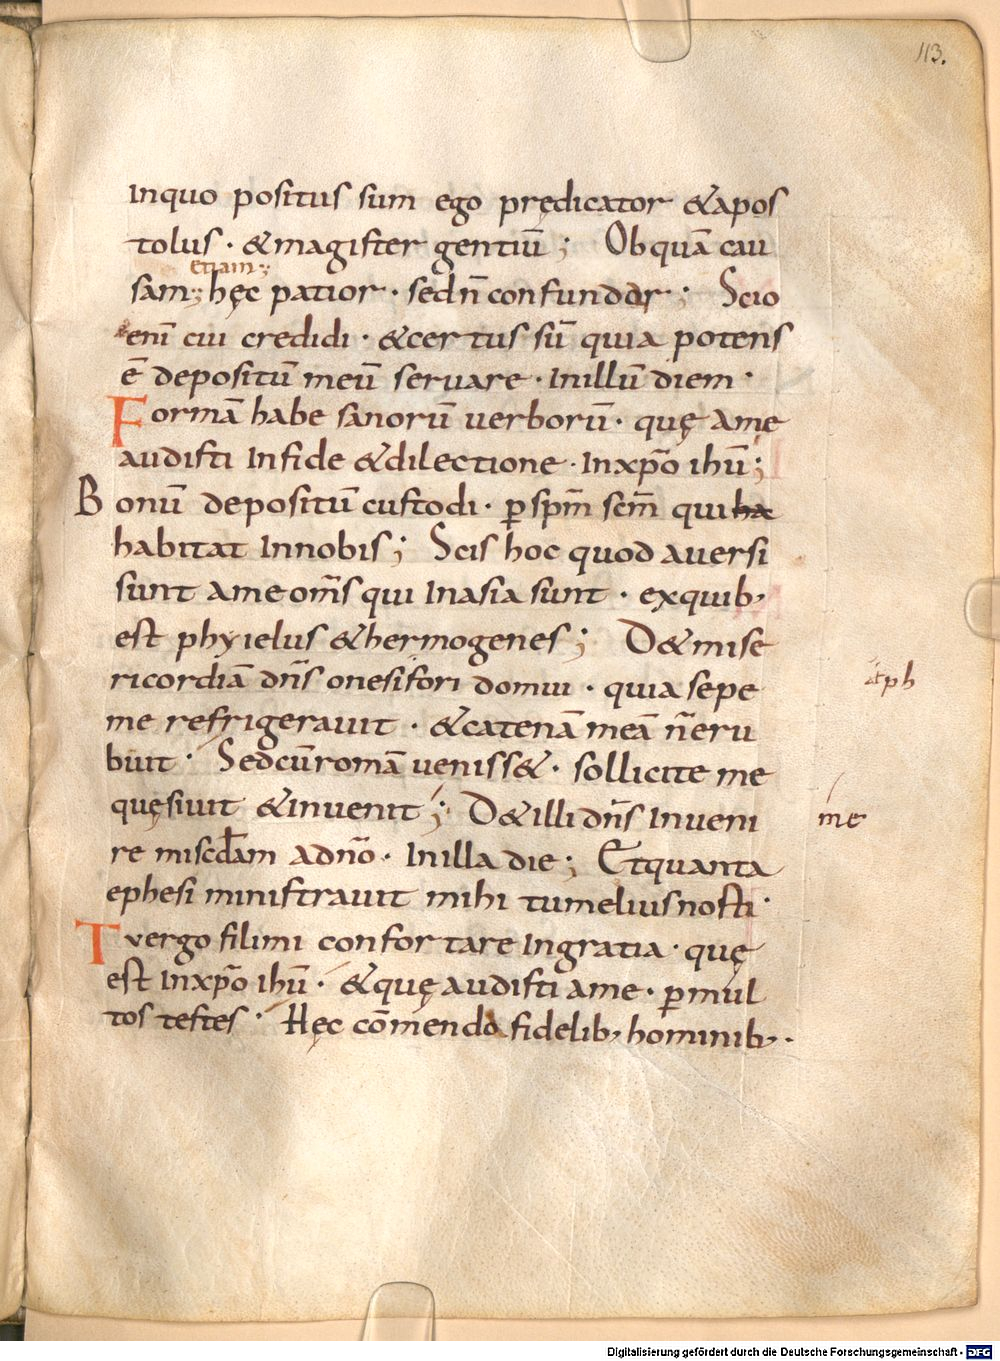 113.
Inquo positus sum ego prędicator &apos
tolus · &magister gentiū ; Ob quā cau
etiam ;
sam ; hęc patior · sed n̄ confundor ; Scio
enī cui credidi · &certus sū quia potens
ē depositū meū servare · Inillū diem ·
Formā habe sanorū verborū · quę ame
audisti Infide &dilectione · Inxp̄o ihū ;
Bonū depositū custodi · ꝑ spm̄ scm̄ qui ha
habitat Innobis ; Scis hoc quod aversi
sunt ame om̄s qui Inasia sunt · exquib;
est phyielus &hermogenes ; D&mise
ricordiā dn̄s onesifori domui · quia sepe
atph
me refrigeravit · &catenā meā n̄ eru
buit · Sedcū romā veniss& · sollicite me
quęsivit &invenit ; D&illi dn̄s Inveni
me
re miscd̄am adn̄o · Inilla die ; Etquanta
ephesi ministravit mihi tumelius nosti ·
Tuergo fili mi confortare Ingratia · quę
est Inxp̄o ihū · &quę audisti ame · ꝑmul
tos testes · Hęc cōmenda fidelib; hominib; ·
Digitalisierung gefördert durch die Deutsche Forschungsgemeinschaft - DFG